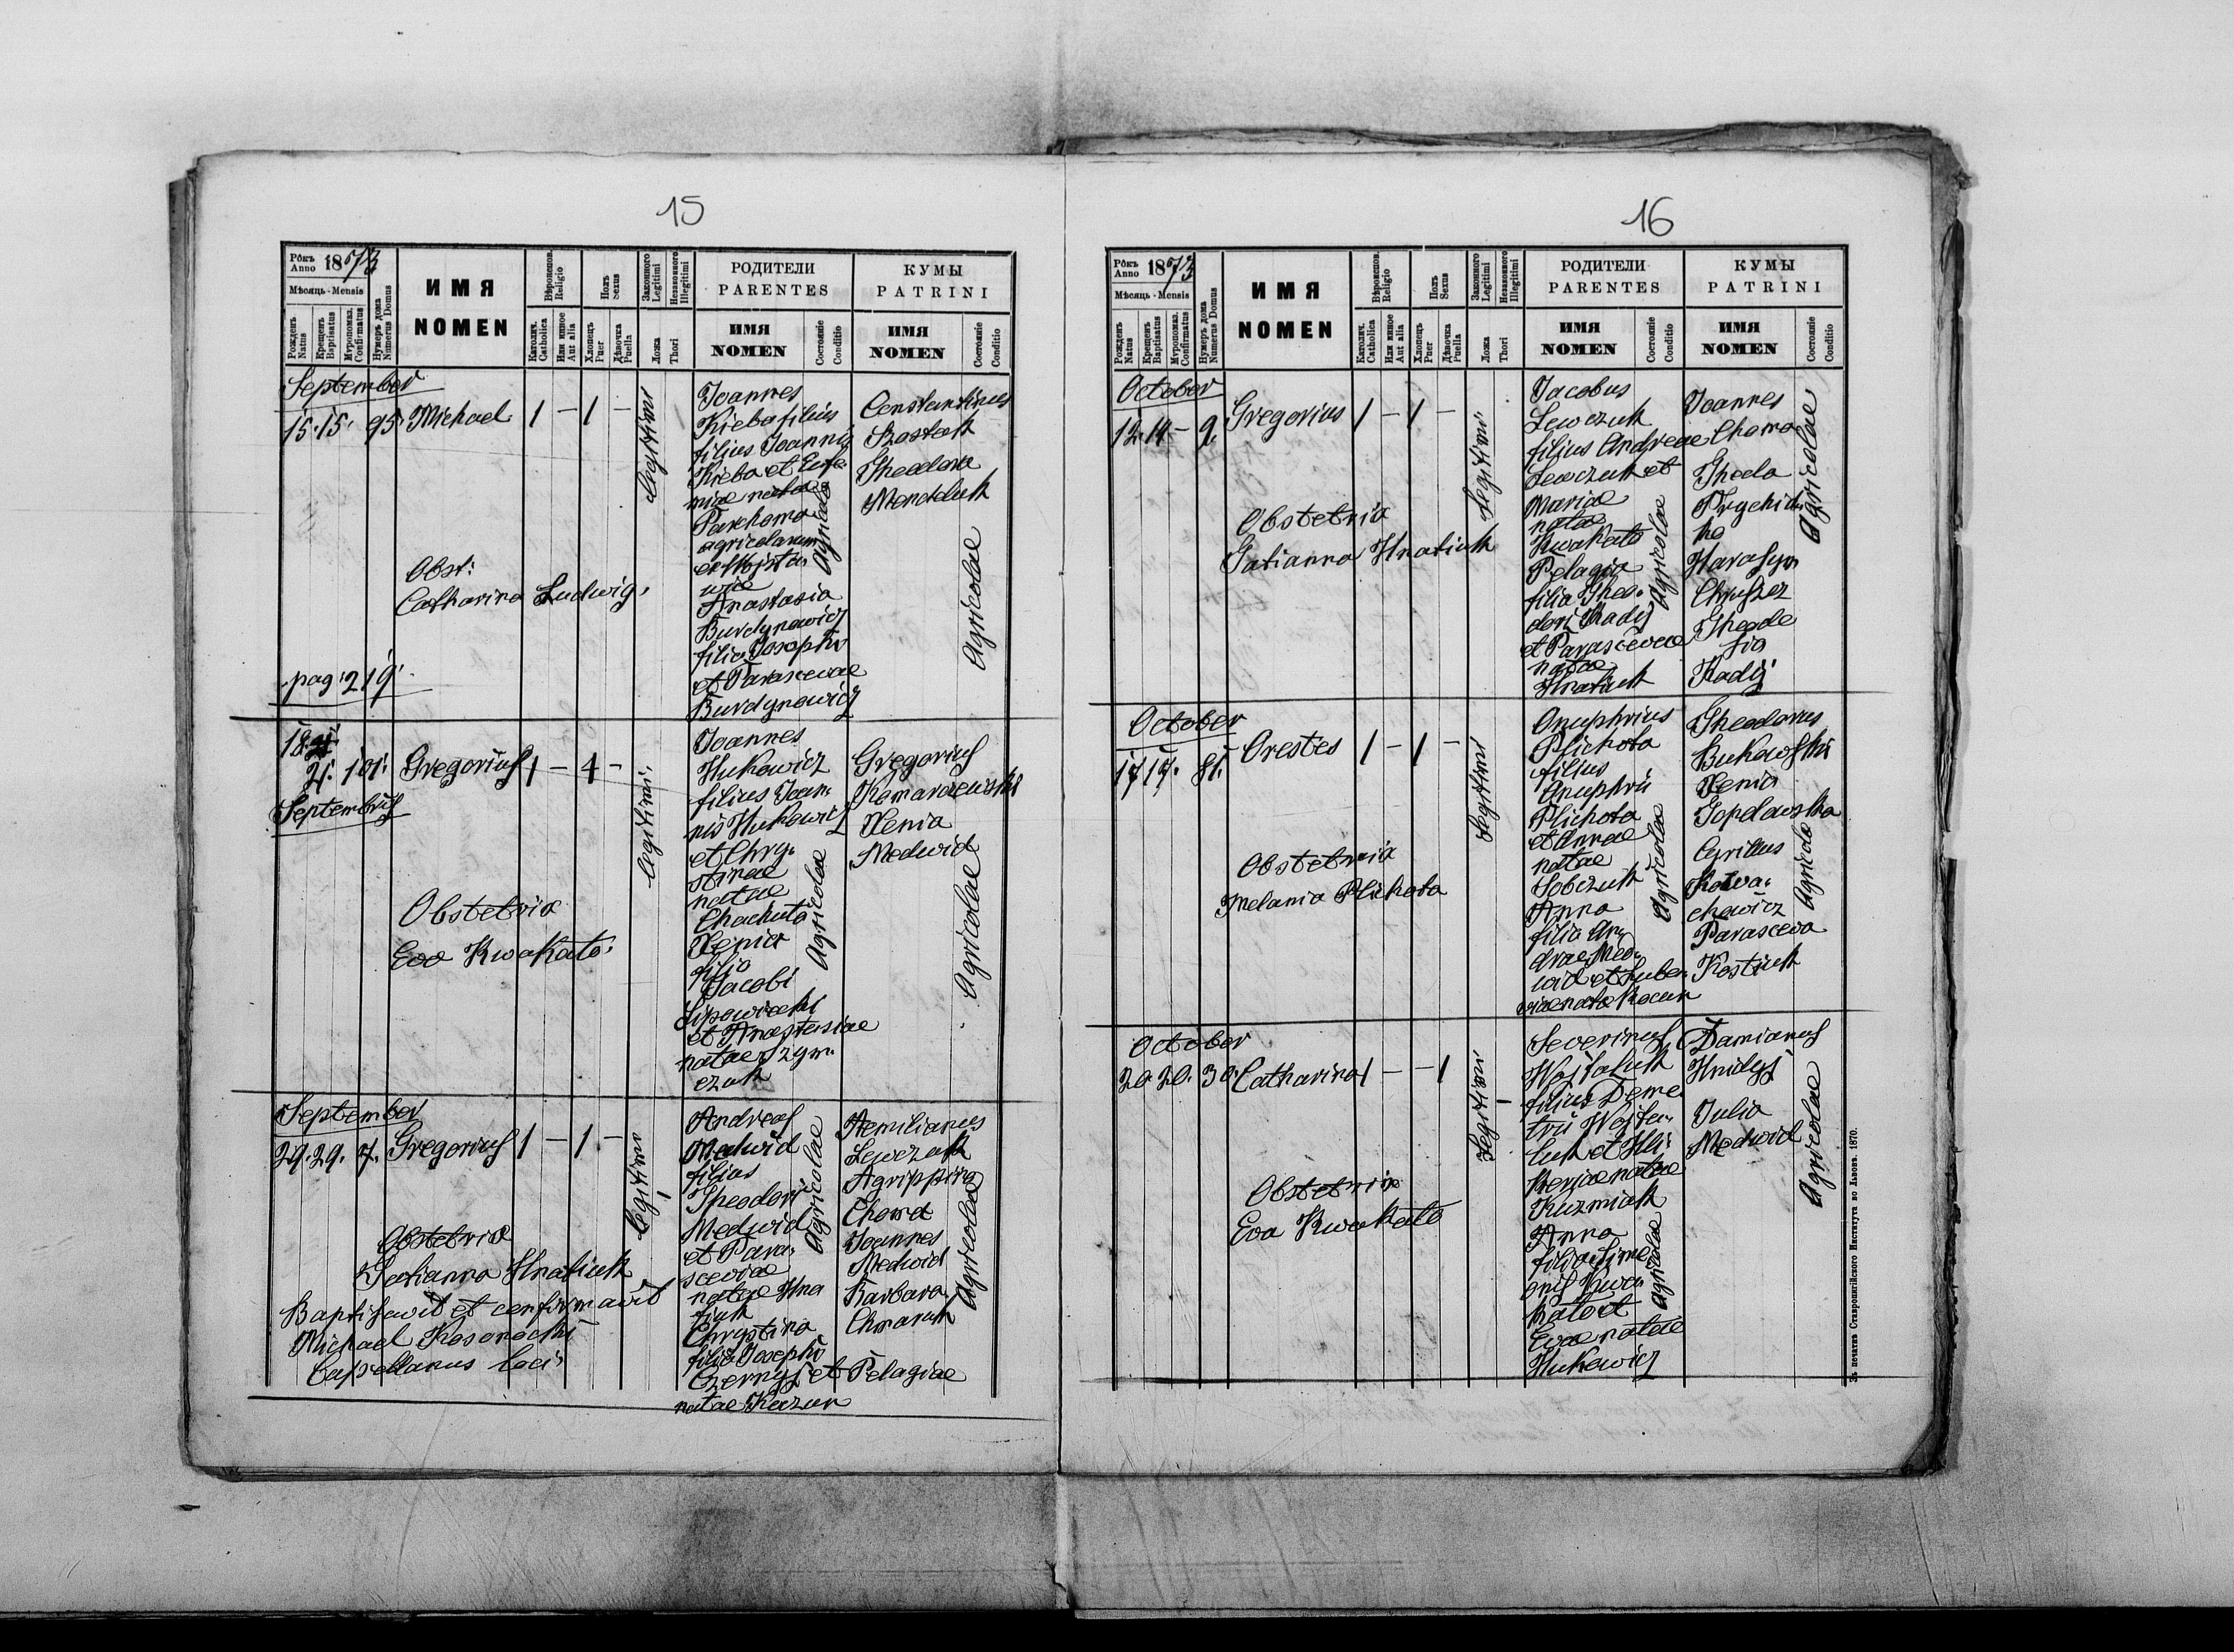 15
Рôкъ Anno 1873
Мѣсяць - Mensis
Рожденъ Natus
Крещенъ Baptisatus
Муропомаз. Confirmatus
Нумеръ дома Numerus Domus
ИМЯ
NOMEN
Вѣроиспов. Religio
Католич. Catholica
Или инное Aut alia
Полъ Sexus
Хлопецъ Puer
Дѣвочка Puella
Законного Legitimi
Незаконного Illegitimi
Ложа Thori
РОДИТЕЛИ
PARENTES
ИМЯ
NOMEN
Состояніе Conditio
КУМЫ
PATRINI
ИМЯ
NOMEN
Состояніе Conditio
September
15. 15. 95. Michael 1 – 1 –
legitimi
Obst:
Catharina Ludwig.
pag. 219.
Joannes
Kieba filius
filius Joannis
Kieba et Eufe-
miae natae
Parchoma
agricolarum
Anastasia
Burdynowicz
filia Josephi
et Parascevae
Burdynowicz
Agricolae
Constantinus
Szostak
Theodora
Mendeluk
Agricolae
18.
21. 101. Gregorius 1 – 1 –
Septembris
legitimi.
Obstetrix
Eva Kwakato.
Joannes
Hukowicz
filius Joan-
nis Hukowicz
et Chry-
stinae
natae
Chachuta
Xenia
filia
Jacobi
Lipowiecki
et Anastasiae
natae Szym-
czuk
Agricolae
Gregorius
Komarzewski
Xenia
Medwid
Agricolae
September
29. 29. 7. Gregorius 1 – 1. –
legitimi
Obstetrix
Tatianna Hnatiuk
Baptisavit et confirmavit
Michael Kosonocki
Capellanus loci.
Andreas
Medwid
filius
Theodori
Medwid
et Para-
sceviae
natae Hna
tiuk
Chrystina
filia Josephi
Czernyj et Pelagiae
natae Kazun
Agricolae
Aemilianus
Lewczuk
Agrippina
Choma
Joannes
Medwid
Barbara
Chmaruk
Agricolae
16
Рôкъ Anno 1873
Мѣсяць - Mensis
Рожденъ Natus
Крещенъ Baptisatus
Муропомаз. Confirmatus
Нумеръ дома Numerus Domus
ИМЯ
NOMEN
Вѣроиспов. Religio
Католич. Catholica
Или инное Aut alia
Полъ Sexus
Хлопецъ Puer
Дѣвочка Puella
Законного Legitimi
Незаконного Illegitimi
Ложа Thori
РОДИТЕЛИ
PARENTES
ИМЯ
NOMEN
Состояніе Conditio
КУМЫ
PATRINI
ИМЯ
NOMEN
Состояніе Conditio
October
12. 14 – 9. Gregorius 1 – 1 –
Legitimi
Obstetrix
Tatianna Hnatiuk
Jacobus
Lewczuk
filius Andreae
Lewczuk et
Mariae
natae
Kwakato
Pelagia
filia Theo-
dori Kadij
et Parascevae
natae
Hnatiuk
Agricolae
Joannes
Choma
Thecla
Prychid-
ko
Harasym
Chruszcz
Theodo
sia
Kadij
Agricolae
October
17 17. 81. Orestes 1 – 1 –
Legitimi
Obstetrix
Melania Plichota
Onuphrius
Plichota
filius
Onuphrii
Plichota
et Annae
natae
Sobczuk
Anna
filia An-
dreae Med-
wid et Lube-
viae natae Kocun
Agricolae
Theodorus
Bukowski
Xenia
Topolowska
Cyrillus
Kowa-
chowicz
Parasceva
Kostiuk
Agricolae
October
20. 20. 30. Catharina 1 – – 1
Legitimi
Obstetrix
Eva Kwakato
Severinus
Wojtaluk
filius Deme
trii Wojta-
luk et Hli-
keriae natae
Kuzmiuk
Anna
filia Sime
onis Kwa-
kato et
Evae natae
Hukowicz
Agricolae
Damianus
Hnidyj
Julia
Medwid
Agricolae
Зъ печатнѣ Ставропигійского Института во Львовѣ. 1870.